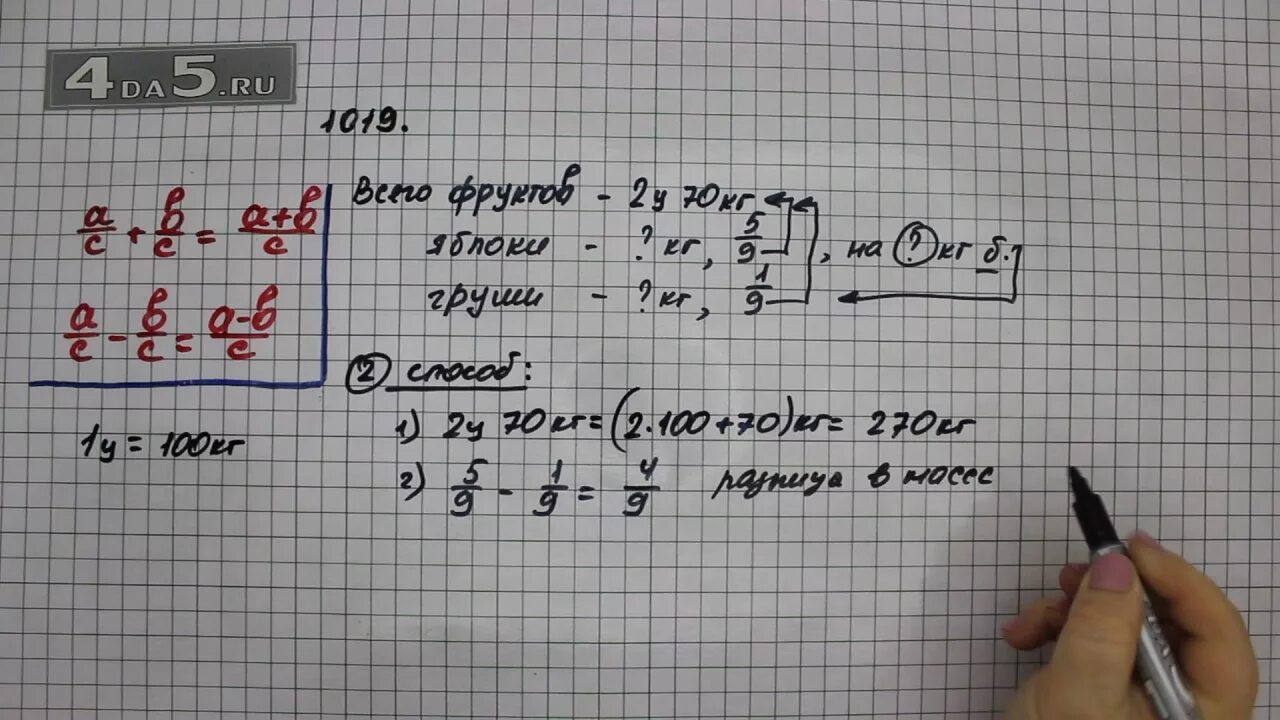 4DA5.RU
1019.
a/c + b/c = a+b/c
a/c - b/c = a-b/c
1ц = 100кг
Всего фруктов - 2ц 70кг
яблоки - ? кг, 5/9, на ? кг б.
груши - ? кг, 1/9
2 способ:
1) 2ц 70кг = (2·100+70)кг = 270кг
2) 5/9 - 1/9 = 4/9 разница в массе